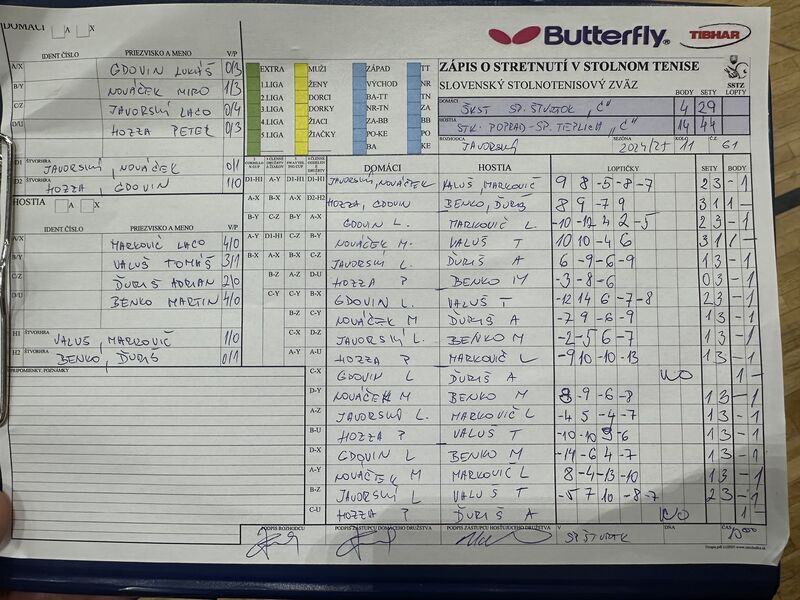 DOMÁCI A X
Butterfly® TIBHAR
IDENT ČÍSLO PRIEZVISKO A MENO V/P
A/X GDOVIN LUKÁŠ 0/3
B/Y NOVÁČEK MIRO 1/3
C/Z JAVORSKÝ LACO 0/4
D/U HOZZA PETER 0/3
D1 ŠTVORHRA JAVORSKÝ, NOVÁČEK 0/1
D2 ŠTVORHRA HOZZA, GDOVIN 1/0
EXTRA MUŽI ZÁPAD TT
1.LIGA ŽENY VÝCHOD NR
2.LIGA DORCI BA-TT TN
3.LIGA DORKY NR-TN ZA
4.LIGA ŽIACI ZA-BB BB
5.LIGA ŽIAČKY PO-KE PO
BA KE
ZÁPIS O STRETNUTÍ V STOLNOM TENISE
SLOVENSKÝ STOLNOTENISOVÝ ZVÄZ SSTZ
BODY SETY LOPTY
DOMÁCI ŠKST SP. ŠTVRTOK "C" 4 29
HOSTIA STK POPRAD-SP. TEPLICA "C" 14 44
ROZHODCA JAVORSKÝ SEZÓNA 2024/25 KOLO 11 Č. 61
HOSTIA A X
IDENT ČÍSLO PRIEZVISKO A MENO V/P
A/X MARKOVIČ LACO 4/0
B/Y VALUŠ TOMÁŠ 3/1
C/Z ĎURIŠ ADRIAN 2/0
D/U BENKO MARTIN 4/0
H1 ŠTVORHRA VALUŠ, MARKOVIČ 1/0
H2 ŠTVORHRA BENKO, ĎURIŠ 0/1
PRIPOMIENKY, POZNÁMKY
DOMÁCI HOSTIA LOPTIČKY SETY BODY
D1-H1 A-Y D1-H1 D1-H1 JAVORSKÝ, NOVÁČEK VALUŠ, MARKOVIČ 9 8 -5 -8 -7 2 3 - 1
A-X B-X A-X D2-H2 HOZZA, GDOVIN BENKO, ĎURIŠ 8 9 -7 9 3 1 1 -
B-Y C-Z B-Y A-X GDOVIN L. MARKOVIČ L. -10 -12 4 2 -5 2 3 - 1
A-Y D1-H1 C-Z B-Y NOVÁČEK M. VALUŠ T 10 10 -4 6 3 1 1 -
B-X A-X B-X C-Z JAVORSKÝ L. ĎURIŠ A 6 -9 -6 -9 1 3 - 1
B-Z A-Z D-U HOZZA P BENKO M -3 -8 -6 0 3 - 1
C-Y C-Y B-X GDOVIN L. VALUŠ T -12 14 6 -7 -8 2 3 - 1
B-Z C-Y NOVÁČEK M ĎURIŠ A -7 9 -6 -9 1 3 - 1
C-X D-Z JAVORSKÝ L. BENKO M -2 -5 6 -7 1 3 - 1
A-Y A-U HOZZA P MARKOVIČ L -9 10 -10 -13 1 3 - 1
C-X GDOVIN L ĎURIŠ A WO 1 - 1
D-Y NOVÁČEK M BENKO M 8 -9 -6 -8 1 3 - 1
A-Z JAVORSKÝ L. MARKOVIČ L -4 5 -4 -7 1 3 - 1
B-U HOZZA P VALUŠ T -10 -10 9 -6 1 3 - 1
D-X GDOVIN L BENKO M -14 -6 4 -7 1 3 - 1
A-Y NOVÁČEK M MARKOVIČ L 8 -4 -13 -10 1 3 - 1
B-Z JAVORSKÝ L VALUŠ T -5 7 10 -8 -7 2 3 - 1
C-U HOZZA P ĎURIŠ A WO 1 - 1
PODPIS ROZHODCU PODPIS ZÁSTUPCU DOMÁCEHO DRUŽSTVA PODPIS ZÁSTUPCU HOSŤUJÚCEHO DRUŽSTVA V SP. ŠTVRTOK DŇA ČAS 10 000